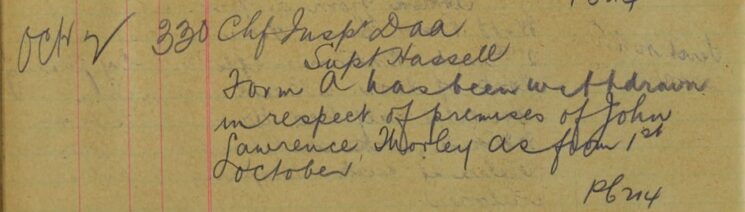 Oct 2 330 Chf Insp Daa
Supt Hassell
Form A has been withdrawn
in respect of premises of John
Lawrence Thorley as from 1st
October